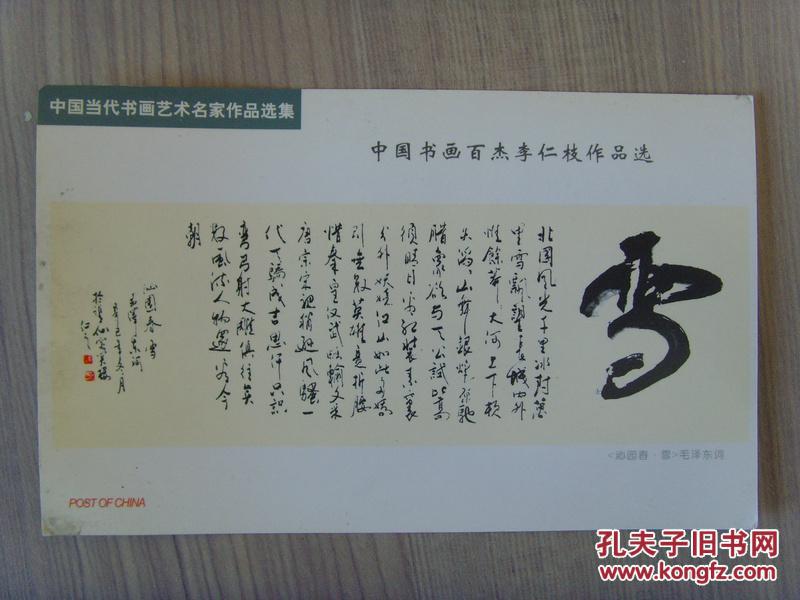 中国当代书画艺术名家作品选集
中国书画百杰李仁枝作品选
雪
北國风光千里冰封萬
里雪飘望長城内外
惟餘莽莽大河上下顿
失滔滔山舞银蛇原驰
腊象欲与天公試比高
须晴日看红装素裹
分外妖娆江山如此多娇
引无数英雄竞折腰
惜秦皇汉武略输文采
唐宗宋祖稍逊风骚一
代天骄成吉思汗只识
弯弓射大雕俱往矣
数风流人物还看今
朝
沁園春雪
毛泽东词
辛巳年冬月
<沁园春·雪>毛泽东词
POST OF CHINA
孔夫子旧书网
www.kongfz.com